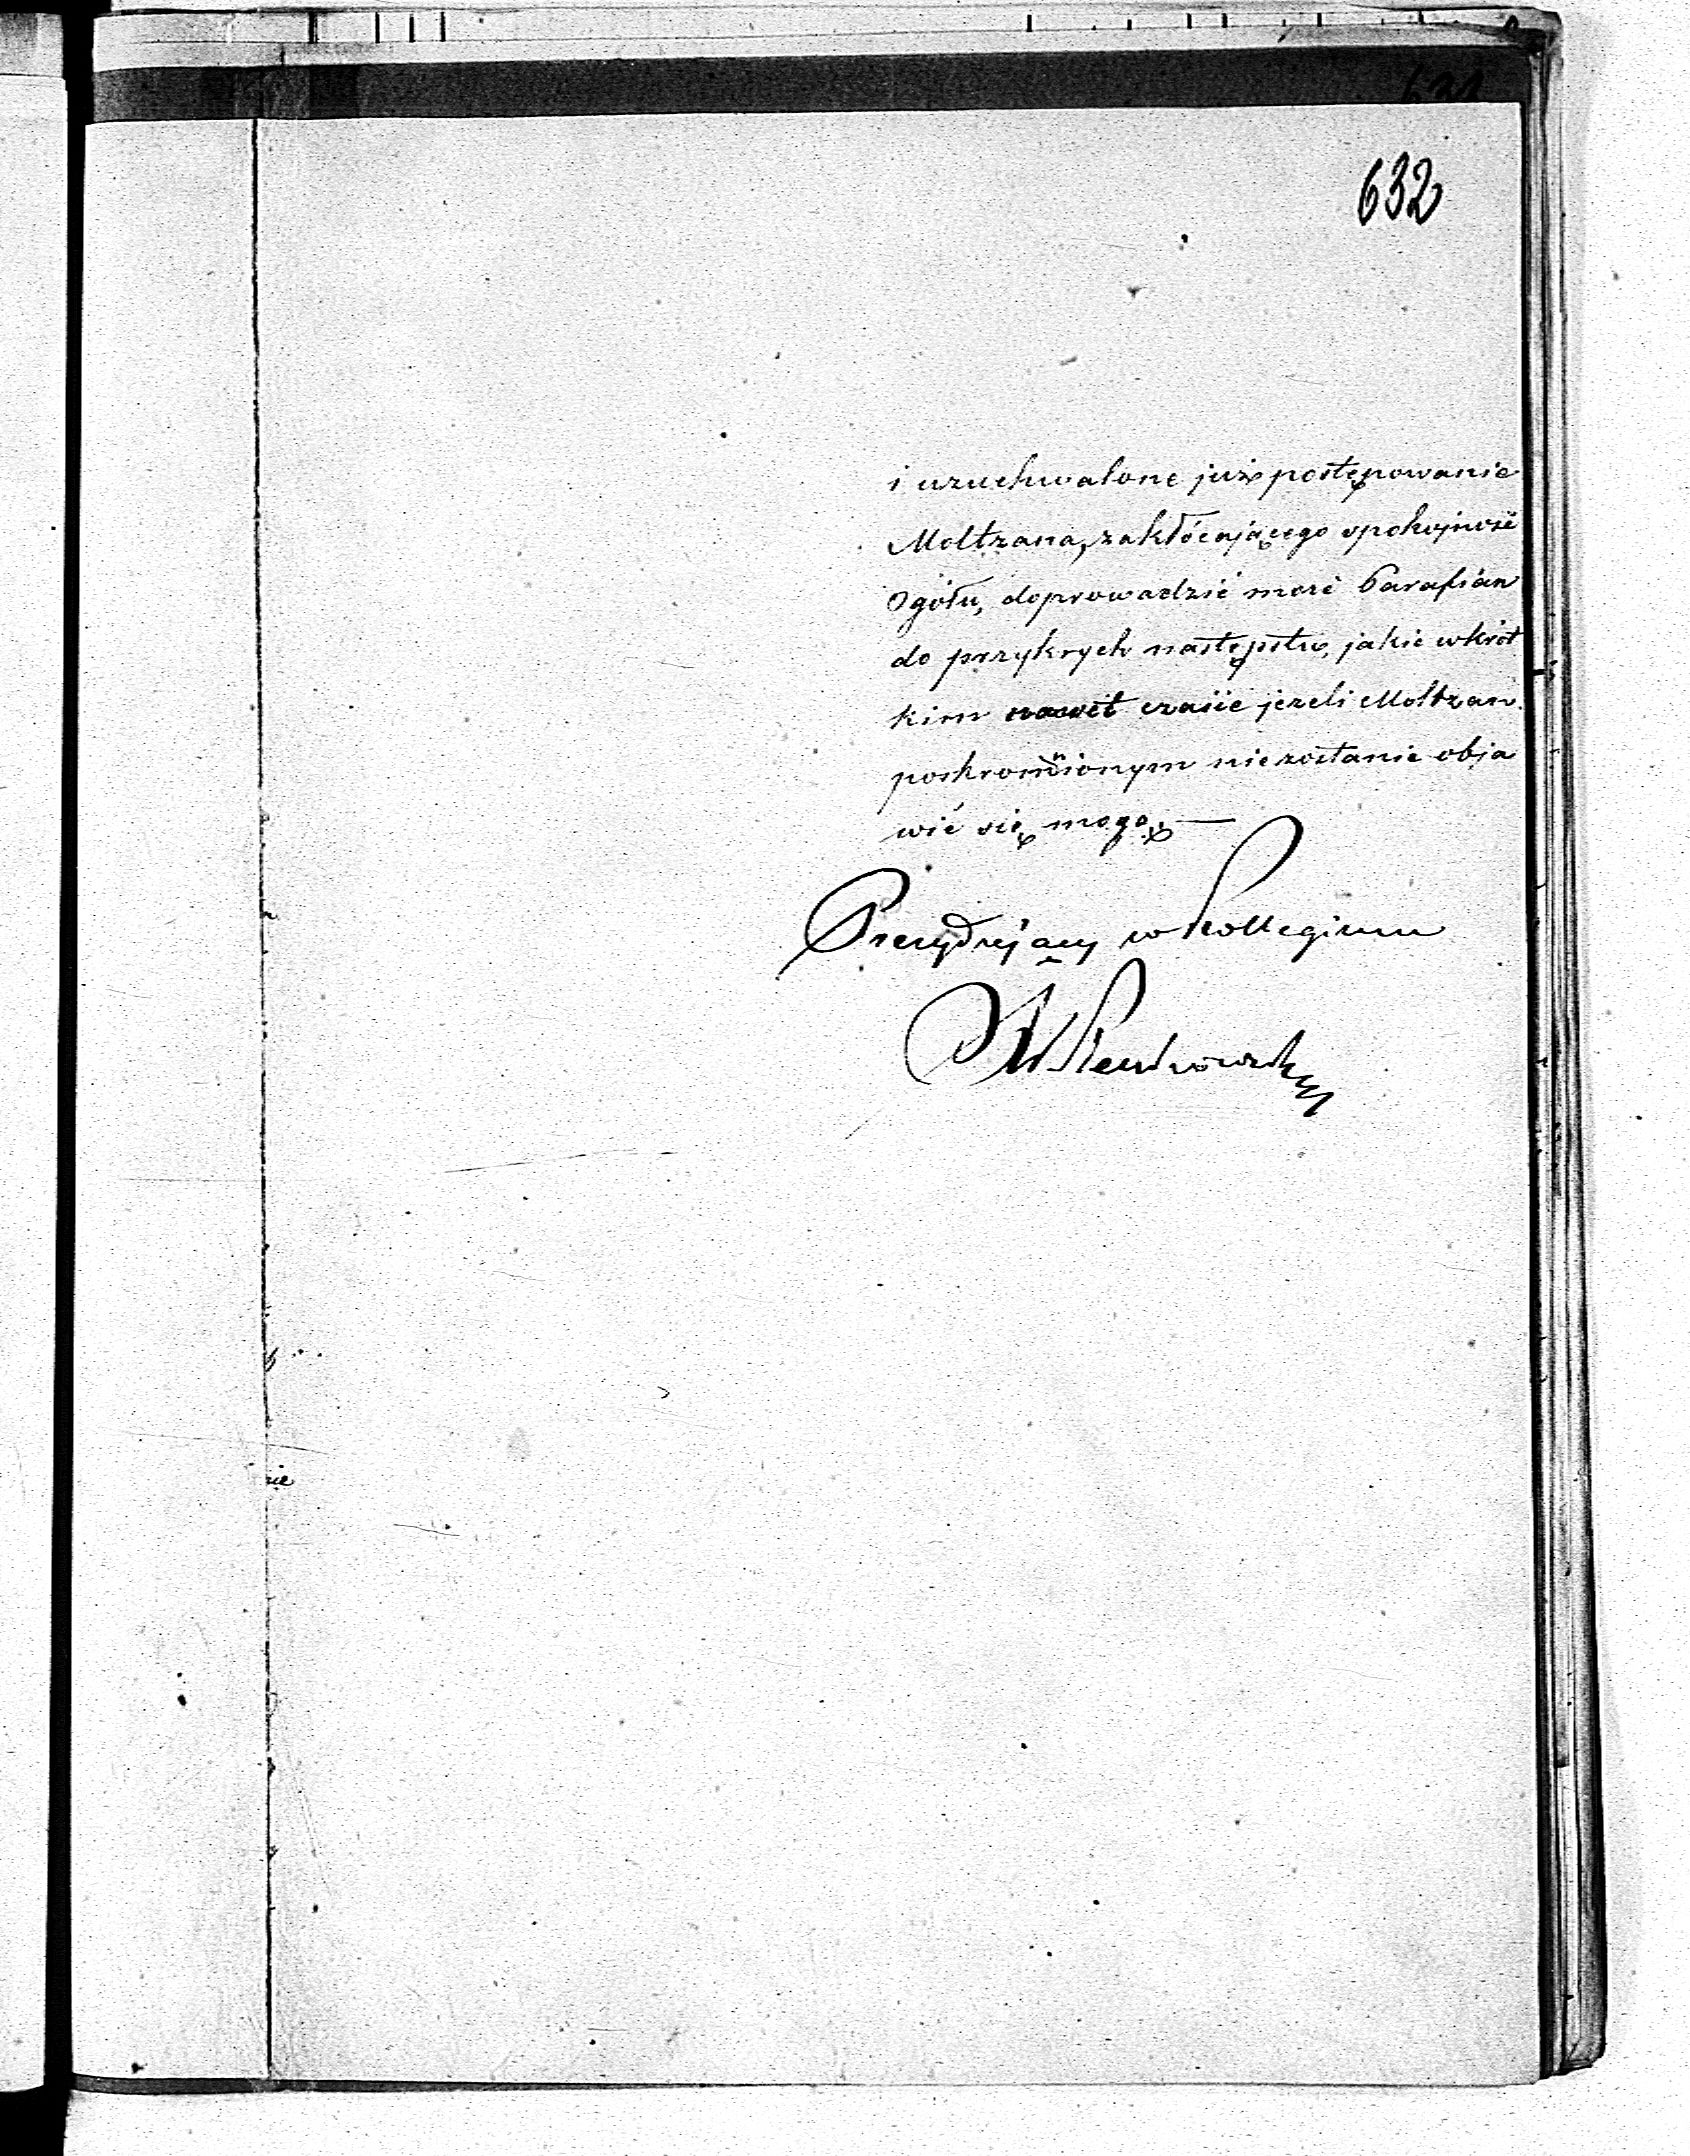 632
i uzuchwalone już postępowanie
Moltzana, zakłócającego spokojność
Ogółu, doprowadzić może Parafian
do przykrych następstw, jakie wkrót
kim nawet czasie jeżeli Moltzan
poskromionym niezostanie obja
wić się mogą. —
Prezydujący w Kollegium